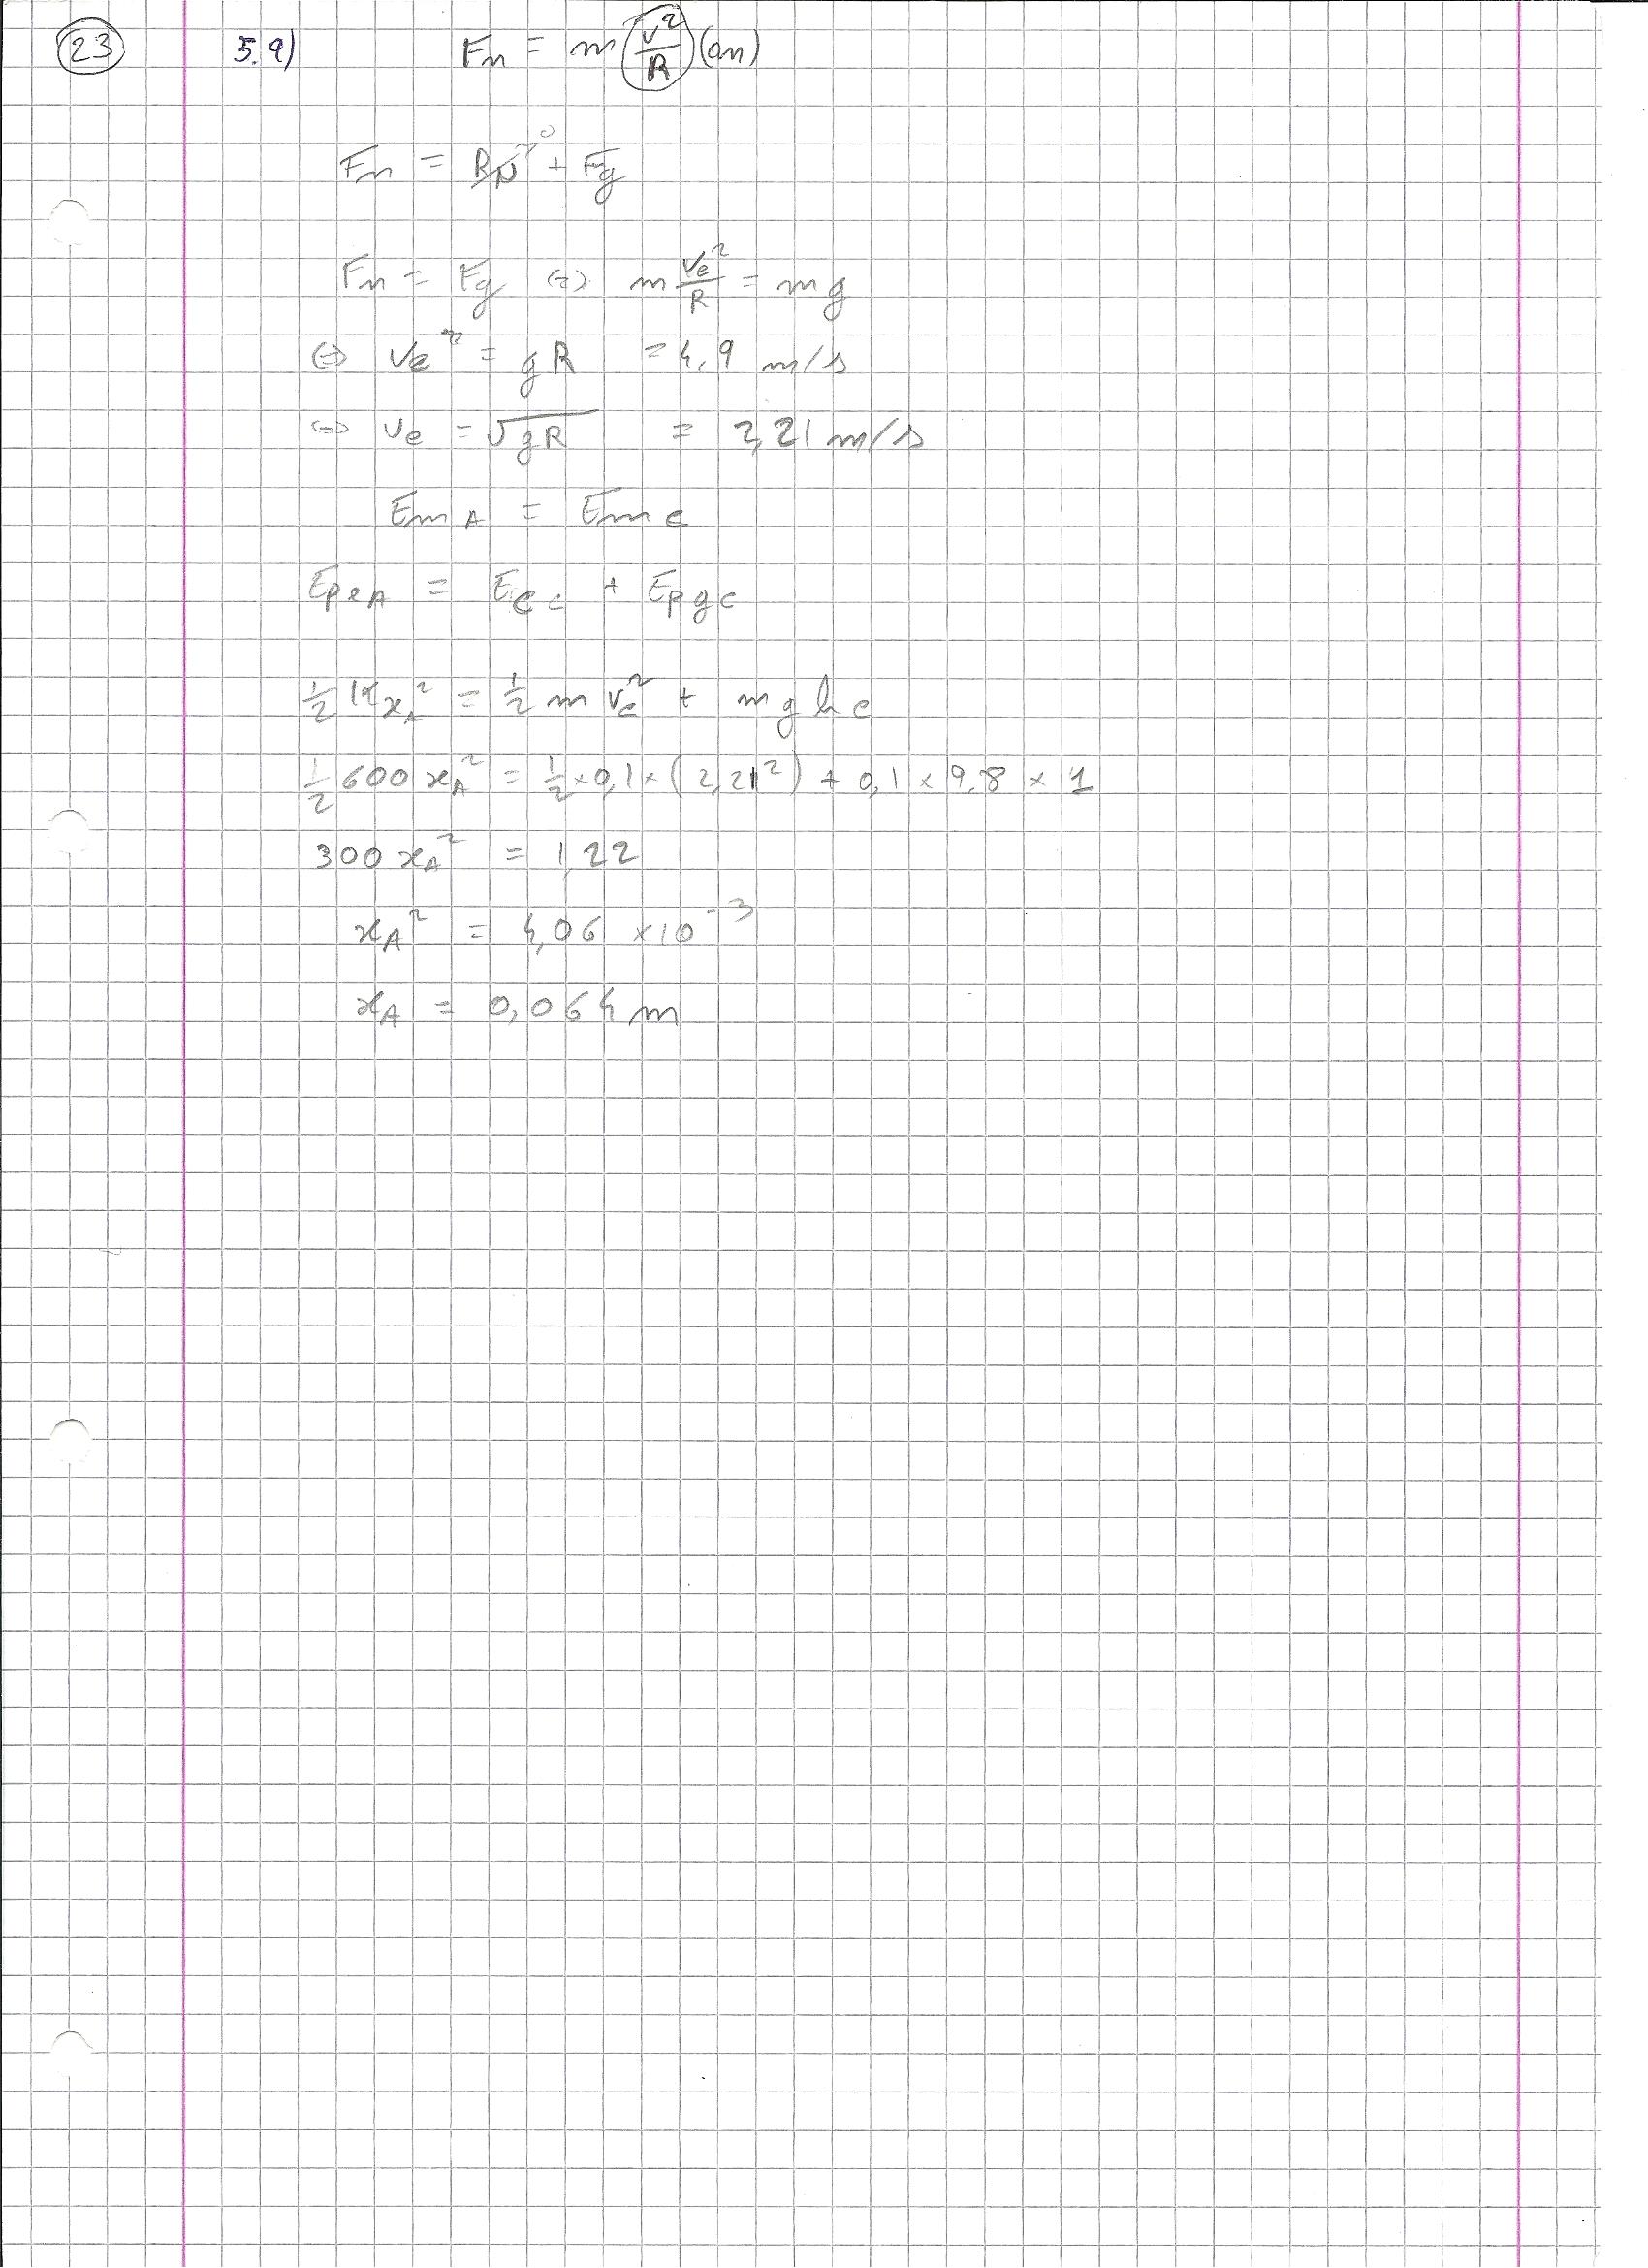 23 5.9) Fn = m v²/R (an)
Fn = RN→0 + Fg
Fn = Fg (=) m Vc²/R = mg
(=) Vc² = gR = 4,9 m/s
(=) Vc = √gR = 2,21 m/s
Em A = Em c
Epe A = Ec c + Epg c
1/2 K xA² = 1/2 m vc² + m g h c
1/2 600 xA² = 1/2 × 0,1 × (2,21²) + 0,1 × 9,8 × 1
300 xA² = 1,22
xA² = 4,06 × 10⁻³
xA = 0,064 m